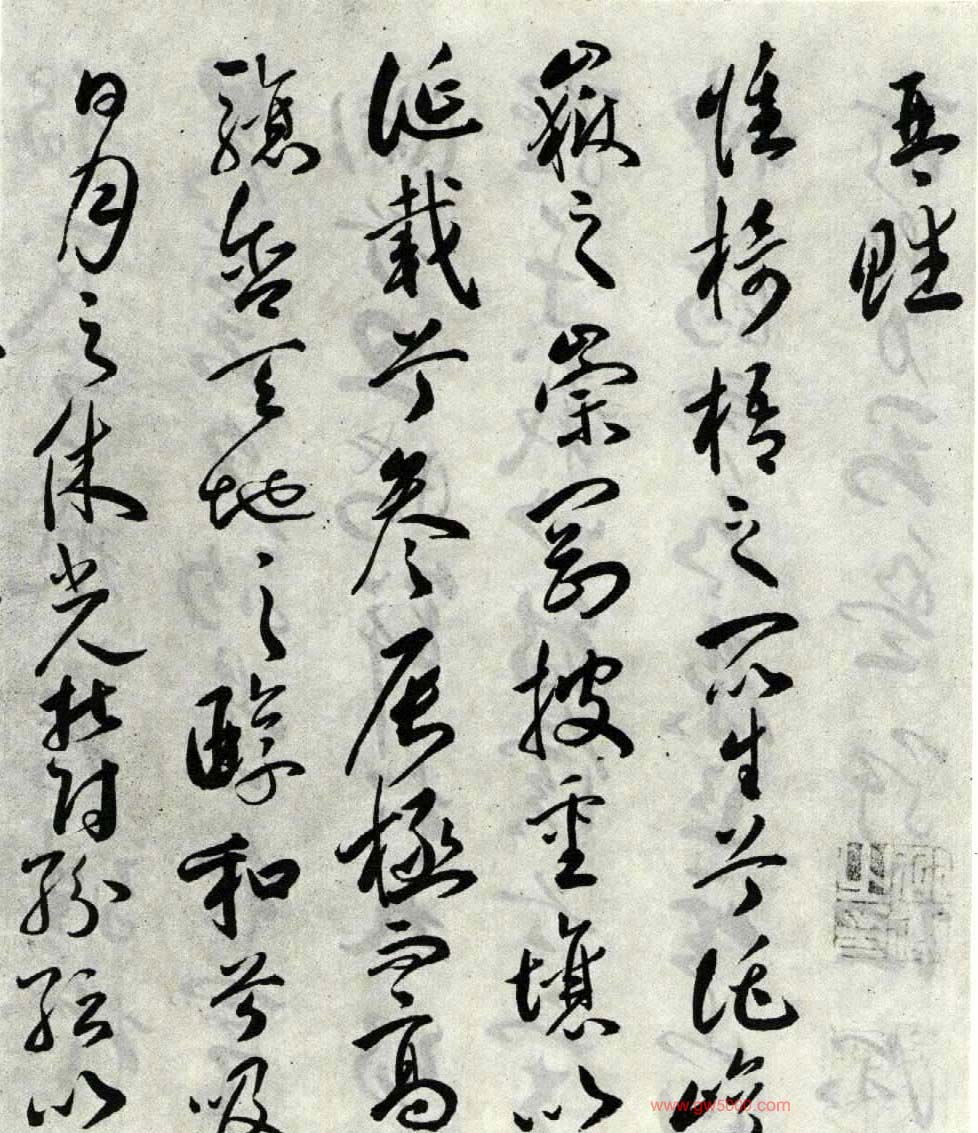 琴賦
惟椅梧之所生兮託峻
嶽之崇岡披重壤以
誕載兮參辰極而高
驤含天地之醇和兮吸
日月之休光於時紛紜以
www.gw5000.com